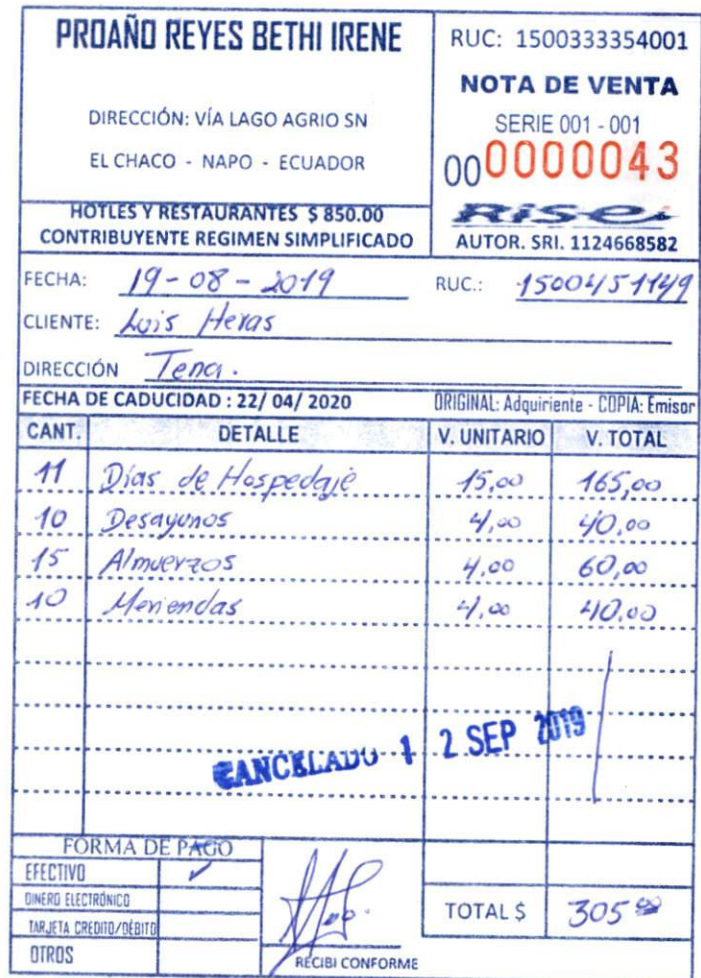 PROAÑO REYES BETHI IRENE
DIRECCIÓN: VÍA LAGO AGRIO SN
EL CHACO - NAPO - ECUADOR
HOTLES Y RESTAURANTES $ 850.00
CONTRIBUYENTE REGIMEN SIMPLIFICADO
RUC: 1500333354001
NOTA DE VENTA
SERIE 001 - 001
00 0000043
Rise
AUTOR. SRI. 1124668582
FECHA: 19-08-2019 RUC.: 1500451149
CLIENTE: Luis Heras
DIRECCIÓN Tena.
FECHA DE CADUCIDAD : 22/ 04/ 2020 ORIGINAL: Adquiriente - COPIA: Emisor
CANT. DETALLE V. UNITARIO V. TOTAL
11 Días de Hospedaje 15,00 165,00
10 Desayunos 4,00 40,00
15 Almuerzos 4,00 60,00
10 Meriendas 4,00 40,00
CANCELADO 12 SEP 2019
FORMA DE PAGO
EFECTIVO ✓
DINERO ELECTRÓNICO
TARJETA CREDITO/DÉBITO
OTROS
RECIBI CONFORME
TOTAL $ 305 00